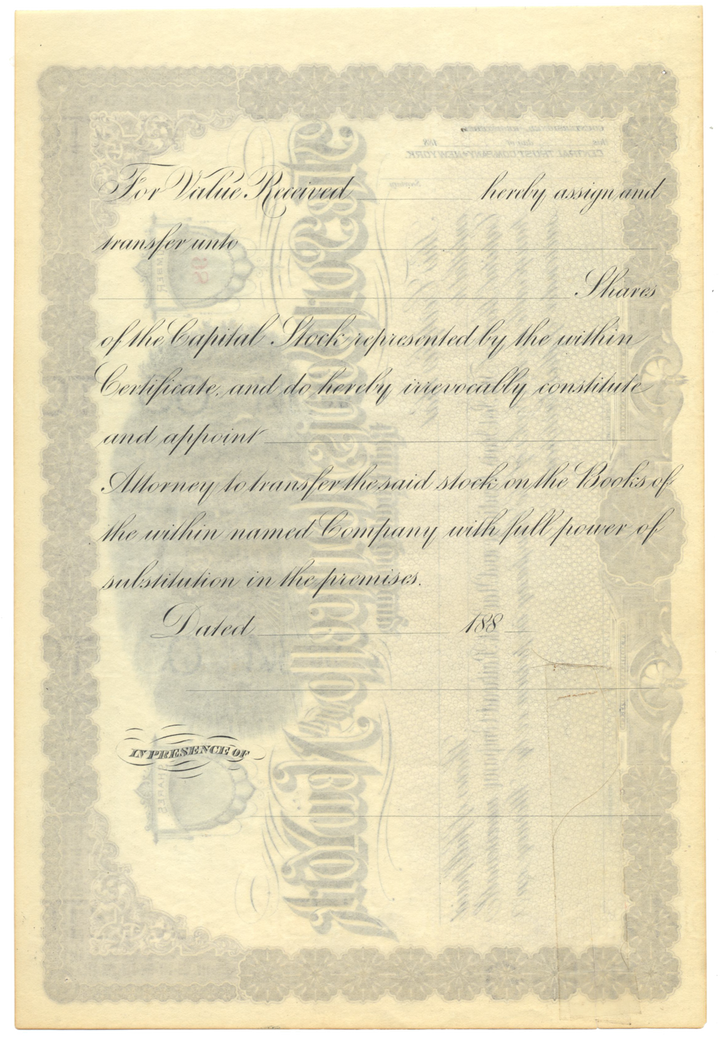 For Value Received hereby assign and
transfer unto
Shares
of the Capital Stock represented by the within
Certificate, and do hereby irrevocably constitute
and appoint
Attorney to transfer the said stock on the Books of
the within named Company with full power of
substitution in the premises.
Dated 188
IN PRESENCE OF